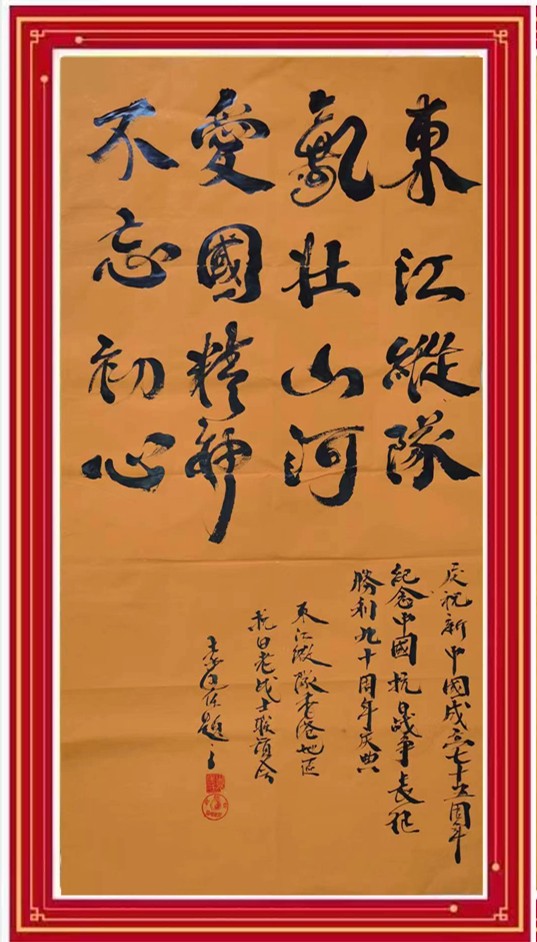 東江縱隊
氣壯山河
愛國精神
不忘初心
庆祝新中國成立七十五周年
紀念中國抗日战争長征
勝利九十周年庆典
东江縱隊香港地区
抗日老战士联谊会
題